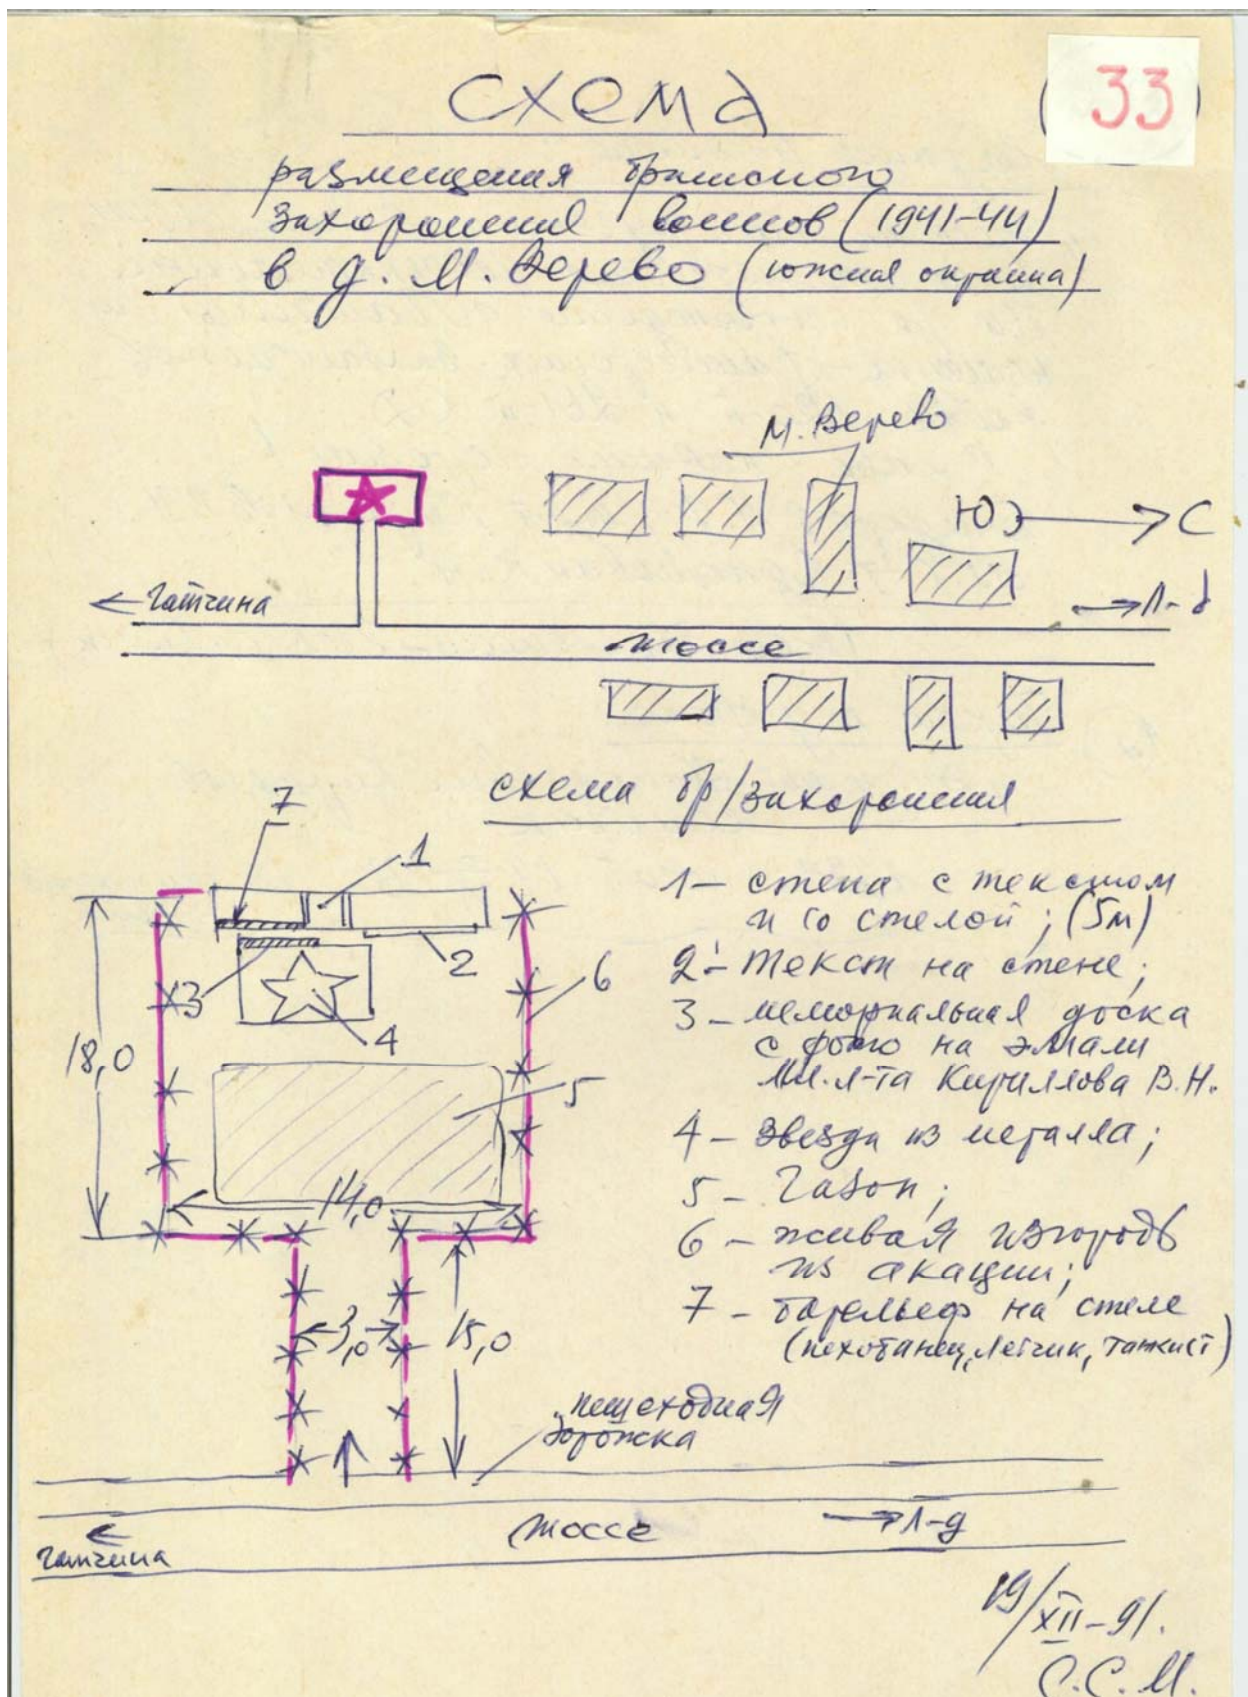 схема
33
размещения братского
захоронения воинов (1941-44)
в д. М. Верево (южная окраина)
М. Верево
Ю С
← Гатчина
→ Л-д
шоссе
схема бр/захоронения
7
1
2
3
4
6
5
18,0
14,0
3,0
15,0
1 – стена с текстом
и со стелой; (5м)
2 – текст на стене;
3 – мемориальная доска
с фото на эмали
мл. л-та Кириллова В.Н.
4 – звезда из металла;
5 – газон;
6 – живая изгородь
из акации;
7 – барельеф на стеле
(пехотанец, летчик, танкист)
пешеходная
дорожка
шоссе
→ Л-д
← Гатчина
19/XII-91.
С.С.М.